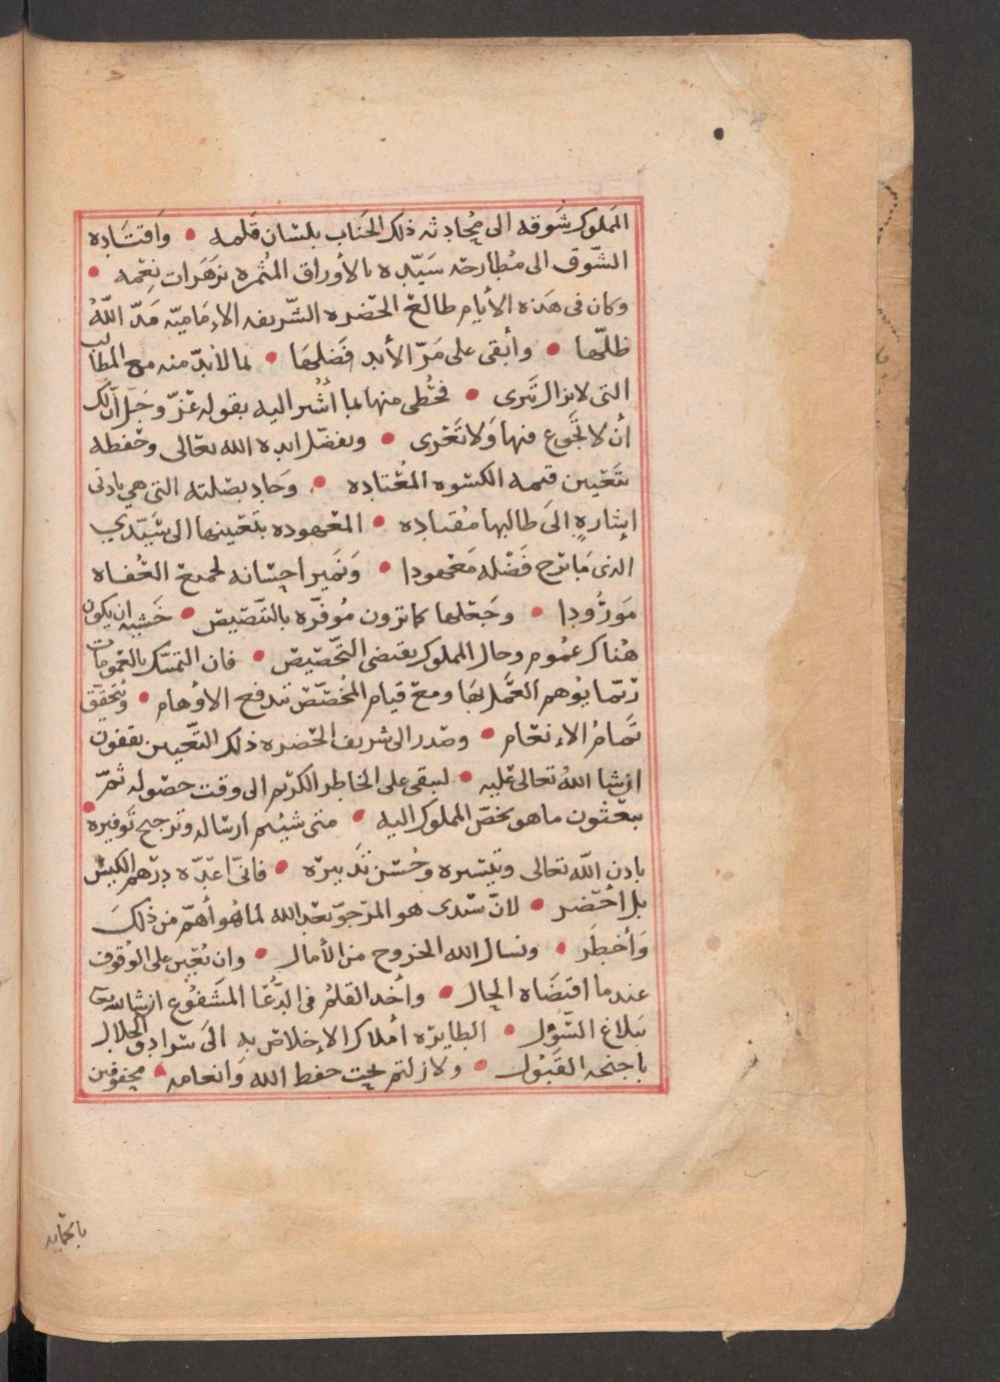 المملوك شوقه الى محادثه ذلك الجناب بلسان قلمه • واقتاده
الشوق الى مطارحة سيّده بالأوراق المثمره بزهرات نعمه •
وكان فى هذه الأيام طالع الحضره الشريفه الاماميّه مدّ اللّه
ظلّها • وأبقى على مرّ الأبد فضلها • لما لابدّ منه مع المطالب
التى لا يزال تترى • فحُظى منها بما أُشير اليه بقوله عزّ وجلّ ان لك
أن لا تجوع فيها ولا تعرى • وتفضل ايده الله تعالى وحفظه
بتعيين قيمه الكسوه المعتاده • وجاد بصلته التى هي بادنى
إيثاره الى طالبها مقتاده • المعهوده بتعيينها الى سيّدي
الذى ما برح فضله معهودا • ونمير احسانه لجميع العفاه
مورودا • وجعلها كما ترون موفّره بالتنصيص • خشيه ان يكون
هناك عموم وحال المملوك يقتضى التخصيص • فان التمسّك بالعمومات
ربّما يوهم العمل بها ومع قيام المخصّص تندفع الاوهام • ويتحقق
تمام الإنعام • وصدر الى شريف الحضره ذلك التعيين تقفون
ان شا اللهُ تعالى عليه • ليبقى على الخاطر الكريم الى وقت حصوله ثمّ
تبعثون ما هو يخصّ المملوك اليه • متى شيتم ارساله وترجيح توفيره •
باذن اللّه تعالى وتيسيره وحُسن تدبيره • فانى اعدّه درهم الكيس
بل أحضر • لانّ سيدى هو المرجوّ بعد الله لما هُو أهمّ من ذلك
وأخطر • ونسال الله الخروج من الأمال • وان نُعين على الوقوف
عند ما اقتضاه الحال • وأخذ القلمُ فى الدُّعا المشفوع ان شا الله
ببلاغ السّول • الطايره أملاك الإخلاص به الى سرادق الجلال
باجنحه القبول • ولا زلتم تحت حفظ الله وانعامه • محفوفين
بالحمايه